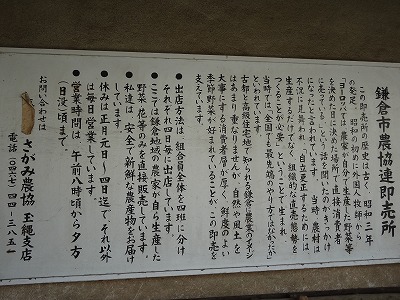 鎌倉市農協連即売所
この即売所の歴史は古く、昭和三年
の発足。昭和の初めに外国人牧師から
「ヨーロッパでは農家が自分で生産した野菜等
を決めた日に決めた場所で、直接消費者
に売っている」という話を聞いたのがきっかけ
になったと言われています。当時、農村は
不況に見舞われ、「自立更正するためには、
生産するだけでなく、組織的な直売態勢を
つくることが必要」として生まれました。
当時では、全国でも最先端のやり方ではなかったか
といわれています。
古都と高級住宅地で知られる鎌倉と農業のイメージ
はあまり重なりませんが、自然や風土を
大事にする消費者層が厚く、鮮度のよい
季節野菜が好まれていることが、この即売を
支えています。
● 出店方法は、組合員全体を四班に分け
それぞれ四日毎に出店しています。
● ここでは鎌倉地域の農家が自ら生産した
野菜・花等のみを直接販売しています。
● 私達は、安全で新鮮な農産物をお届け
しています。
● 休みは正月元日〜四日迄で、それ以外
は毎日営業しています。
● 営業時間は、午前八時頃から夕方
(日没頃)まで。
お問い合わせは
さがみ農協 玉縄支店
電話(〇四六七)四四ー三八五一